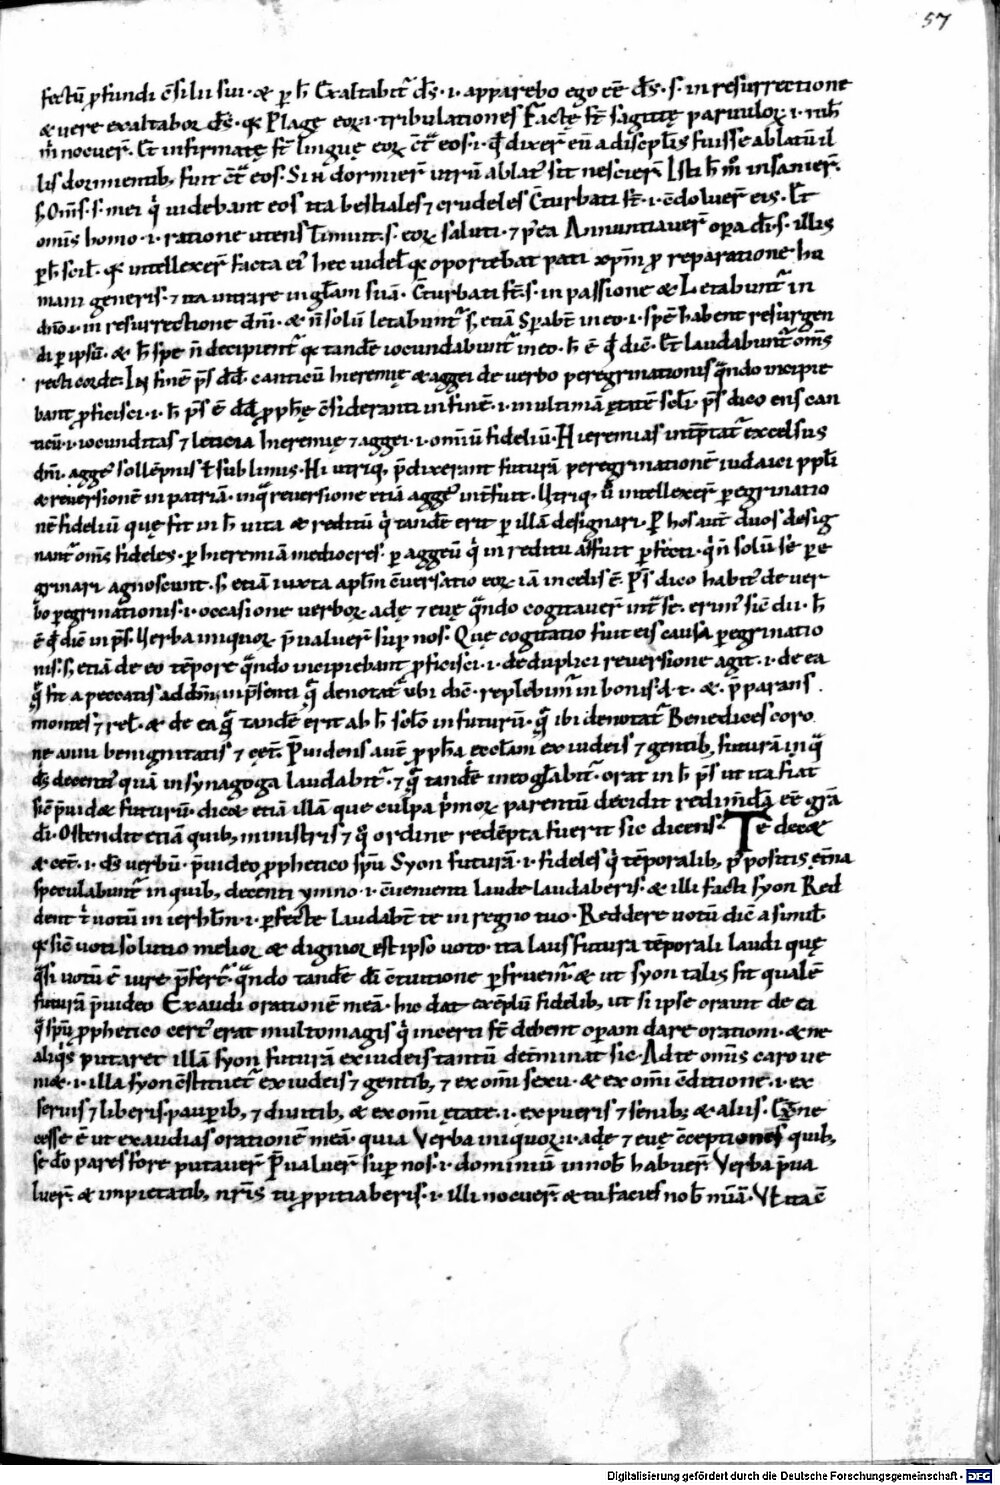 57
fectū ꝓfundi c̄silii sui · & ꝑ h̄ Exaltabit᷑ d̄s · i · apparebo ego eē d̄s · s · in resurrectione
& uere exaltabor d̄s · qꝛ Plagę eoꝝ · i · tribulationes Factę st̄ sagittę paruuloꝝ · i · nih̄
m̄ nocuer̄ · Et infirmatę st̄ linguę eoꝝ ct̄ͣ eos · i · qđ dixer̄ eū a discipl̄is fuisse ablatū il
lis dormientib; fuit ct̄ͣ eos · Si n̄ dormier̄ utrū ablat᷒ sit nescier̄ Isti h̄ m̄ insanier̄ ·
s; Om̄s · s · mei qͥ uidebant eos ita bestiales ⁊ crudeles C̄turbati st̄ · i · c̄doluer̄ eis · Et
omīs homo · i · ratione utens Timuit · s · eoꝝ saluti · ⁊ pꝰea Annuntiauer̄ oꝑa dī · s · illis
ꝑ h̄ scil̄ · qꝛ intellexer̄ facta ei᷒ hec uidel̄ qꝛ oportebat pati xp̄m ꝓ reparatione hu
mani generis · ⁊ ita intrare in gl̄am suā · C̄turbati st̄ · s · in passione & Letabunt᷑ in
dn̄o · i · in resurrectione dn̄i · & n̄ solū letabunt᷑ s; etiā Sꝑabt̄ in eo · i · spē habent resurgen
di ꝑ ipsū · & h̄ spe n̄ decipient᷑ qꝛ tandē iocundabunt᷑ in eo · h̄ ē qđ dic̄ · Et laudabunt᷑ om̄s
recti corde · IN finē ps̄ dd̄ · canticū hieremię & aggei de uerbo peregrinationis qͣndo incipie
bant ꝓficisci · i · h̄ ps̄ ē dd̄ ꝓph̄ę c̄sideranti in finē · i · in ultimā ętatē scl̄i · ps̄ dico ens can
ticū · i · iocunditas ⁊ leticia hieremię ⁊ aggei · i · omniū fideliū · Hieremias int̄ptat᷑ excelsus
dn̄i · agge᷒ sollēpnis t̄ sublimis · Hi utriq; p̄dixerant futurā peregrinationē iudaici ppl̄i
& reuersionē in patriā · in qͣ reuersione etiā agge᷒ int̄fuit · Utriq; ū intellexer̄ ꝑegrinatio
nē fideliū quę fit in h̄ uita & reditū qͥ tandē erit ꝑ illā designari · P hos aut̄ duos desig
nant᷑ om̄s fideles · ꝑ hieremiā mediocres · ꝑ aggeū qͥ in reditu affuit ꝑfecti · qͥ n̄ solū se ꝑe
grinari agnoscunt · s; etiā iuxta apl̄m c̄uersatio eoꝝ iā in celis ē · Ps̄ dico habit᷒ de uer
bo ꝑegrinationis · i · occasione uerboꝝ adę ⁊ euę qͣndo cogitauer̄ int̄ se · erim᷒ sic̄ dii · h̄
ē qđ dic̄ in ps̄ · Uerba iniquoꝝ p̄ualuer̄ suꝑ nos · Quę cogitatio fuit eis causa ꝑegrinatio
nis · s; etiā de eo tēpore qͣndo incipiebant ꝓficisci · i · de duplici reuersione agit · i · de ea
qͣ fit a peccatis ad dn̄m in p̄senti qͣ denotat᷑ ubi dic̄ · replebim᷑ in bonis · d · t · & p̄parans
montes ⁊ rel̄ · & de ea qͣ tandē erit ab h̄ scl̄o in futurū · qͣ ibi denotat᷑ Benedices coro
nę anni benignitatis ⁊ cęt̄ · P̄uidens aut̄ ꝓph̄a eccl̄am ex iudeis ⁊ gentib; futurā in qͣ
d̄s decenti᷒ quā in synagoga laudabit᷑ · ⁊ qͣ tandē int̄o gl̄abit᷑ · orat in h̄ ps̄ ut ita fiat
sic̄ p̄uidet futurū · dicit etiā illā que culpa pͥmoꝝ parentū decidit redim̄dā eē gr̄a
dī · Ostendit etiā quib; ministris ⁊ qͦ ordine redēpta fuerit sic dicens · Te decet
& cet̄ · i · d̄s uerbū · p̄uideo ꝓphetico spū Syon futurā · i · fideles qͥ tēporalib; p̄positis et̄na
speculabunt᷑ in quib; decenti ymno · i · c̄uenienti laude laudaberis · & illi facti syon Red
dent tͥ uotū in ierh̄lm · i · ꝑfecte laudabt̄ te in regno tuo · Reddere uotū dic̄ a simil̄
qꝛ sic̄ uoti solutio melior & dignior est ipso uoto · ita laus futura tēporali laudi quę
qͣsi uotū ē iure p̄fert᷑ · qͣndo tandē dī c̄tuitione ꝑfruem᷑ · & ut syon talis sit qualē
futurā p̄uideo Exaudi orationē meā · hic dat exēplū fidelib; ut si ipse orauit de ea
qͣ spū ꝓphetico cert᷒ erat multo magis qͥ incerti st̄ debent oꝑam dare orationi · & ne
aliqͥs putaret illā syon futurā ex iudeis tantū det̄minat sic · Ad te om̄is caro ue
niet · i · illa syon c̄stituet᷑ ex iudeis ⁊ gentib; ⁊ ex omī sexu · & ex omī c̄ditione · i · ex
seruis ⁊ liberis · pauꝑib; ⁊ diuitib; & ex omī ętate · i · ex pueris ⁊ senib; & aliis · Et ne
cesse ē ut exaudias orationē meā · quia Verba iniquoꝝ · i · adę ⁊ euę c̄ceptiones quib;
se do pares fore putauer̄ P̄ualuer̄ suꝑ nos · i · dominiū in nob̄ habuer̄ Verba p̄ua
luer̄ · & impietatib; nr̄is tu ꝓpitiaberis · i · illi nocuer̄ · & tu facies nob̄ mīā · Vt ita ē
Digitalisierung gefördert durch die Deutsche Forschungsgemeinschaft - DFG